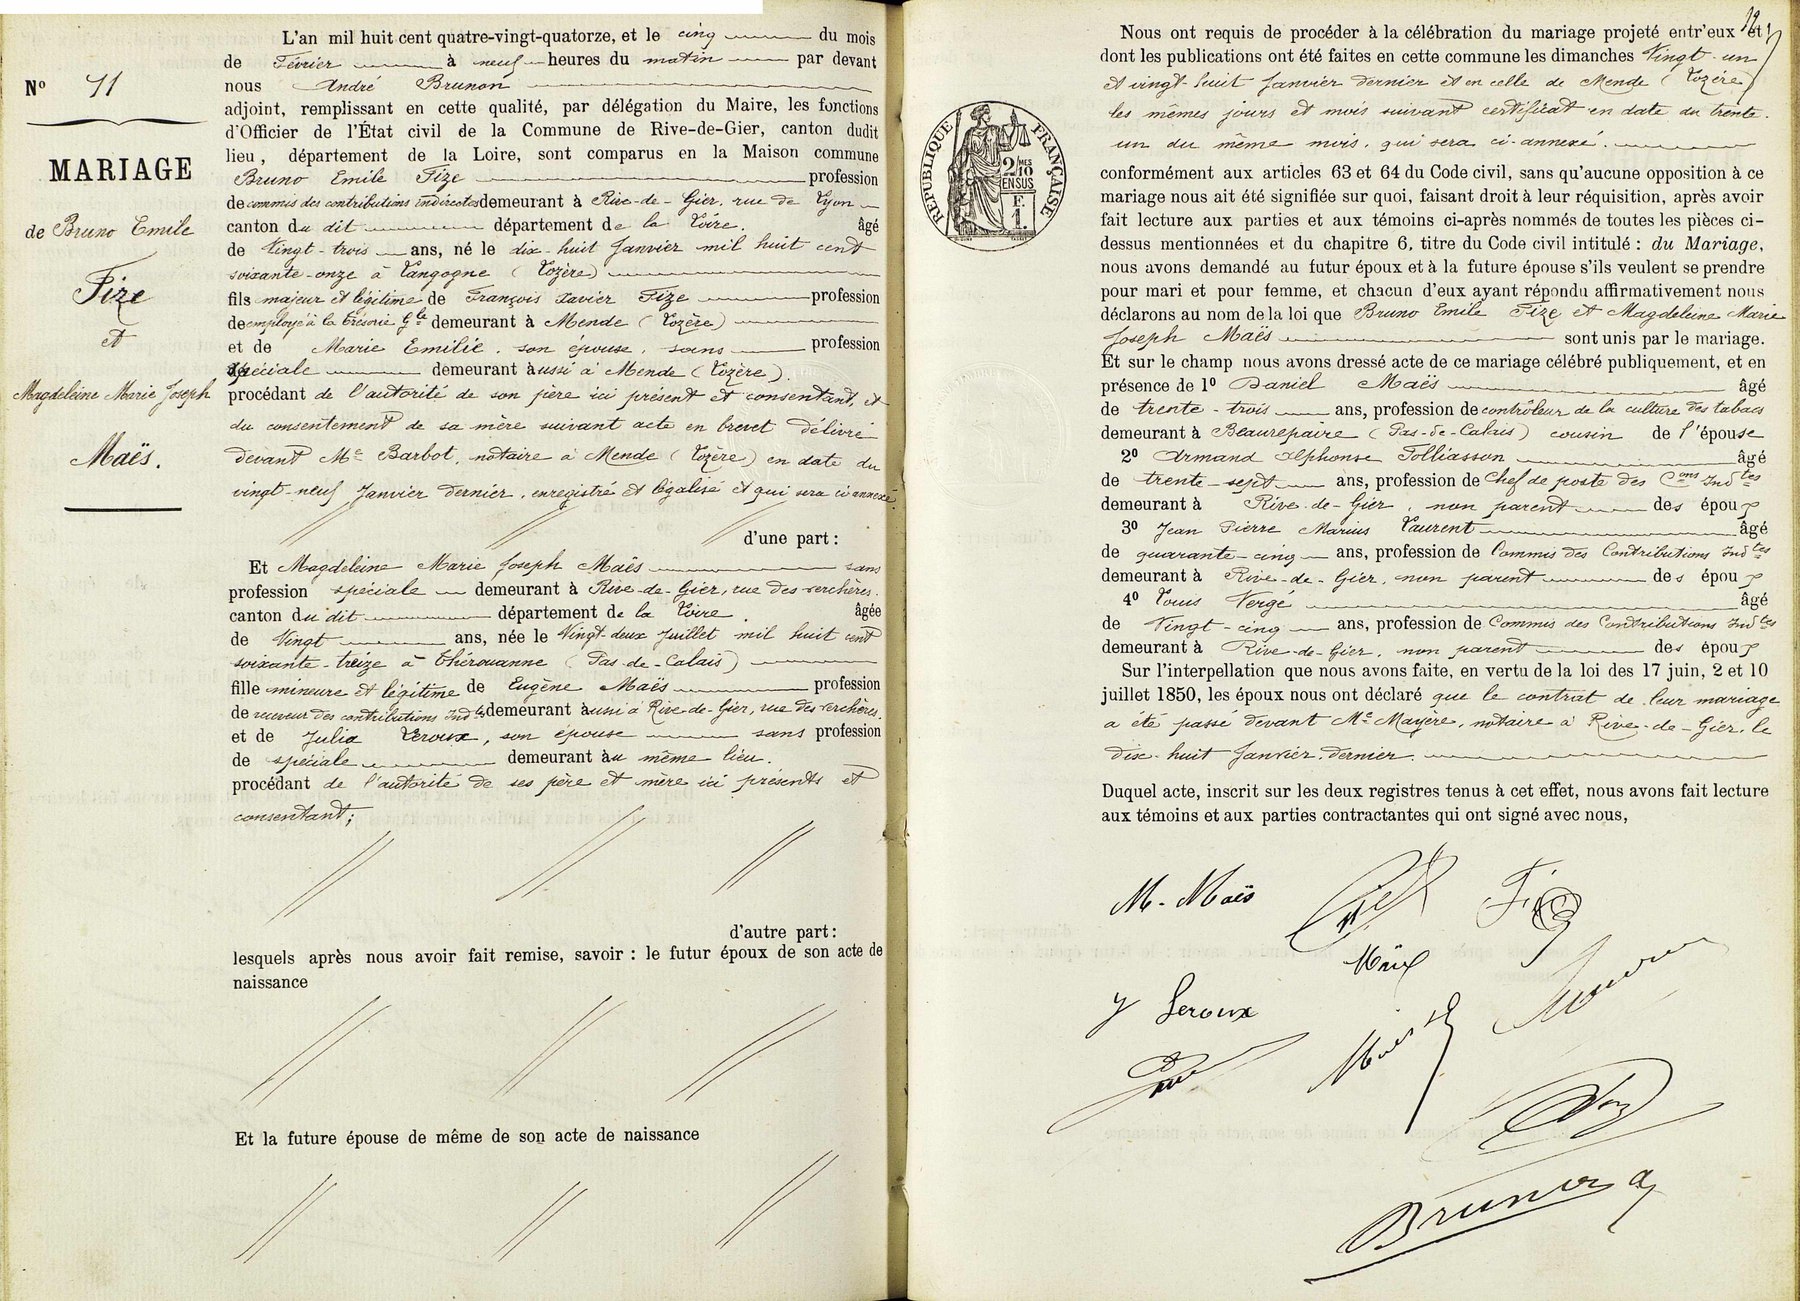 L'an mil huit cent quatre-vingt-quatorze, et le cinq du mois
de Février à neuf heures du matin par devant
nous André Brunon
adjoint, remplissant en cette qualité, par délégation du Maire, les fonctions
d'Officier de l'État civil de la Commune de Rive-de-Gier, canton dudit
lieu, département de la Loire, sont comparus en la Maison commune
Bruno Emile Fize profession
de commis des contributions indirectes demeurant à Rive-de-Gier, rue de Lyon
canton du dit département de la Loire. âgé
de Vingt-trois ans, né le dix-huit Janvier mil huit cent
soixante-onze à Langogne (Lozère)
fils majeur et légitime de François Xavier Fize profession
de employé à la trésorie Gle demeurant à Mende (Lozère)
et de Marie Emilie, son épouse, sans profession
spéciale demeurant aussi à Mende (Lozère).
procédant de l'autorité de son père ici présent et consentant, et
du consentement de sa mère suivant acte en brevet délivré
devant Me Barbot, notaire à Mende (Lozère) en date du
vingt-neuf Janvier dernier, enregistré et légalisé et qui sera ci annexé
d'une part :
Et Magdeleine Marie Joseph Maës sans
profession spéciale demeurant à Rive-de-Gier, rue des Verchères.
canton du dit département de la Loire. âgée
de Vingt ans, née le Vingt-deux Juillet mil huit cent
soixante-treize à Thérouanne (Pas-de-Calais)
fille mineure et légitime de Eugène Maës profession
de receveur des contributions Indtes demeurant aussi à Rive-de-Gier, rue des Verchères.
et de Julia Leroux, son épouse sans profession
de spéciale demeurant au même lieu.
procédant de l'autorité de ses père et mère ici présents et
consentant;
d'autre part :
lesquels après nous avoir fait remise, savoir : le futur époux de son acte de
naissance
Et la future épouse de même de son acte de naissance
No 11
MARIAGE
de Bruno Emile
Fize
et
Magdeleine Marie Joseph
Maës.
RÉPUBLIQUE FRANÇAISE
2/10 MES
EN SUS
F.
1.
Nous ont requis de procéder à la célébration du mariage projeté entr'eux et
dont les publications ont été faites en cette commune les dimanches Vingt-un
et vingt-huit Janvier dernier et en celle de Mende (Lozère)
les mêmes jours et mois suivant certificat en date du trente-
un du même mois, qui sera ci-annexé.
conformément aux articles 63 et 64 du Code civil, sans qu'aucune opposition à ce
mariage nous ait été signifiée sur quoi, faisant droit à leur réquisition, après avoir
fait lecture aux parties et aux témoins ci-après nommés de toutes les pièces ci-
dessus mentionnées et du chapitre 6, titre du Code civil intitulé : du Mariage,
nous avons demandé au futur époux et à la future épouse s'ils veulent se prendre
pour mari et pour femme, et chacun d'eux ayant répondu affirmativement nous
déclarons au nom de la loi que Bruno Emile Fize et Magdeleine Marie
Joseph Maës sont unis par le mariage.
Et sur le champ nous avons dressé acte de ce mariage célébré publiquement, et en
présence de 1o Daniel Maës âgé
de trente-trois ans, profession de contrôleur de la culture des tabacs
demeurant à Beaurepaire (Pas-de-Calais) cousin de l'épouse
2o Armand Alphonse Folliasson âgé
de trente-sept ans, profession de Chef de poste des Cons Indtes
demeurant à Rive-de-Gier, non parent des époux
3o Jean Pierre Marius Laurent âgé
de quarante-cinq ans, profession de Commis des Contributions Indtes
demeurant à Rive-de-Gier, non parent des époux
4o Louis Vergé âgé
de Vingt-cinq ans, profession de Commis des Contributions Indtes
demeurant à Rive-de-Gier, non parent des époux
Sur l'interpellation que nous avons faite, en vertu de la loi des 17 juin, 2 et 10
juillet 1850, les époux nous ont déclaré que le contrat de leur mariage
a été passé devant Me Mayère, notaire à Rive-de-Gier, le
dix-huit Janvier dernier.
Duquel acte, inscrit sur les deux registres tenus à cet effet, nous avons fait lecture
aux témoins et aux parties contractantes qui ont signé avec nous,
M. Maës
J Leroux
Brunon a